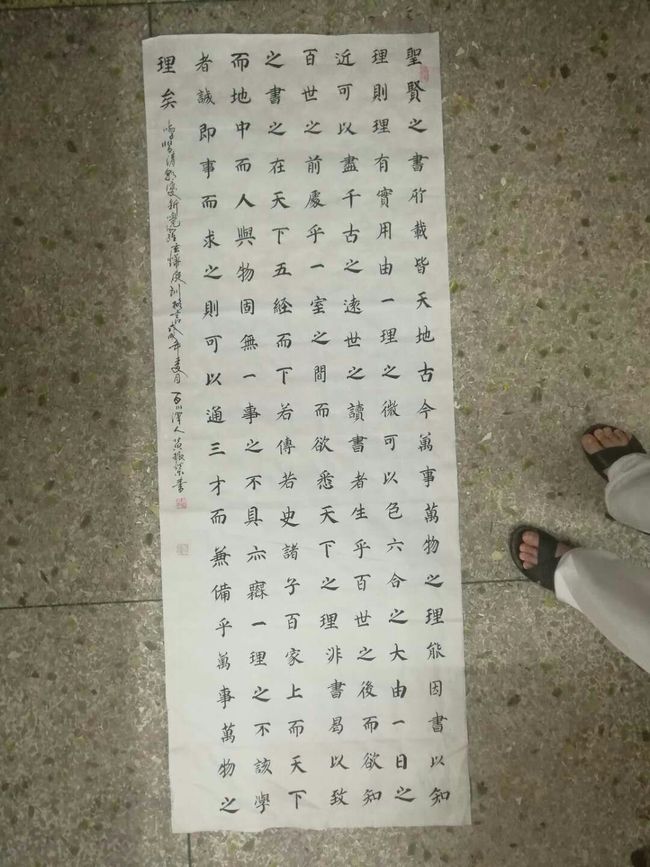 聖賢之書所載皆天地古今萬事萬物之理能因書以知
理則理有實用由一理之微可以色六合之大由一日之
近可以盡千古之遠世之讀書者生乎百世之後而欲知
百世之前處乎一室之間而欲悉天下之理非書曷以致
之書之在天下五經而下若傳若史諸子百家上而天下
而地中而人與物固無一事之不具亦無一理之不該學
者誠即事而求之則可以通三才而兼備乎萬事萬物之
理矣
清愛新覺羅玄燁庭訓格言戊戌年夏月百川澤人黃振榮書